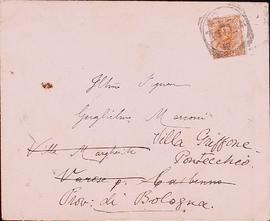 Illmo Signor
Guglielmo Marconi
Villa Griffone
Villa Margherita
Pontecchio
Varese p.
Prov: di Bologna.